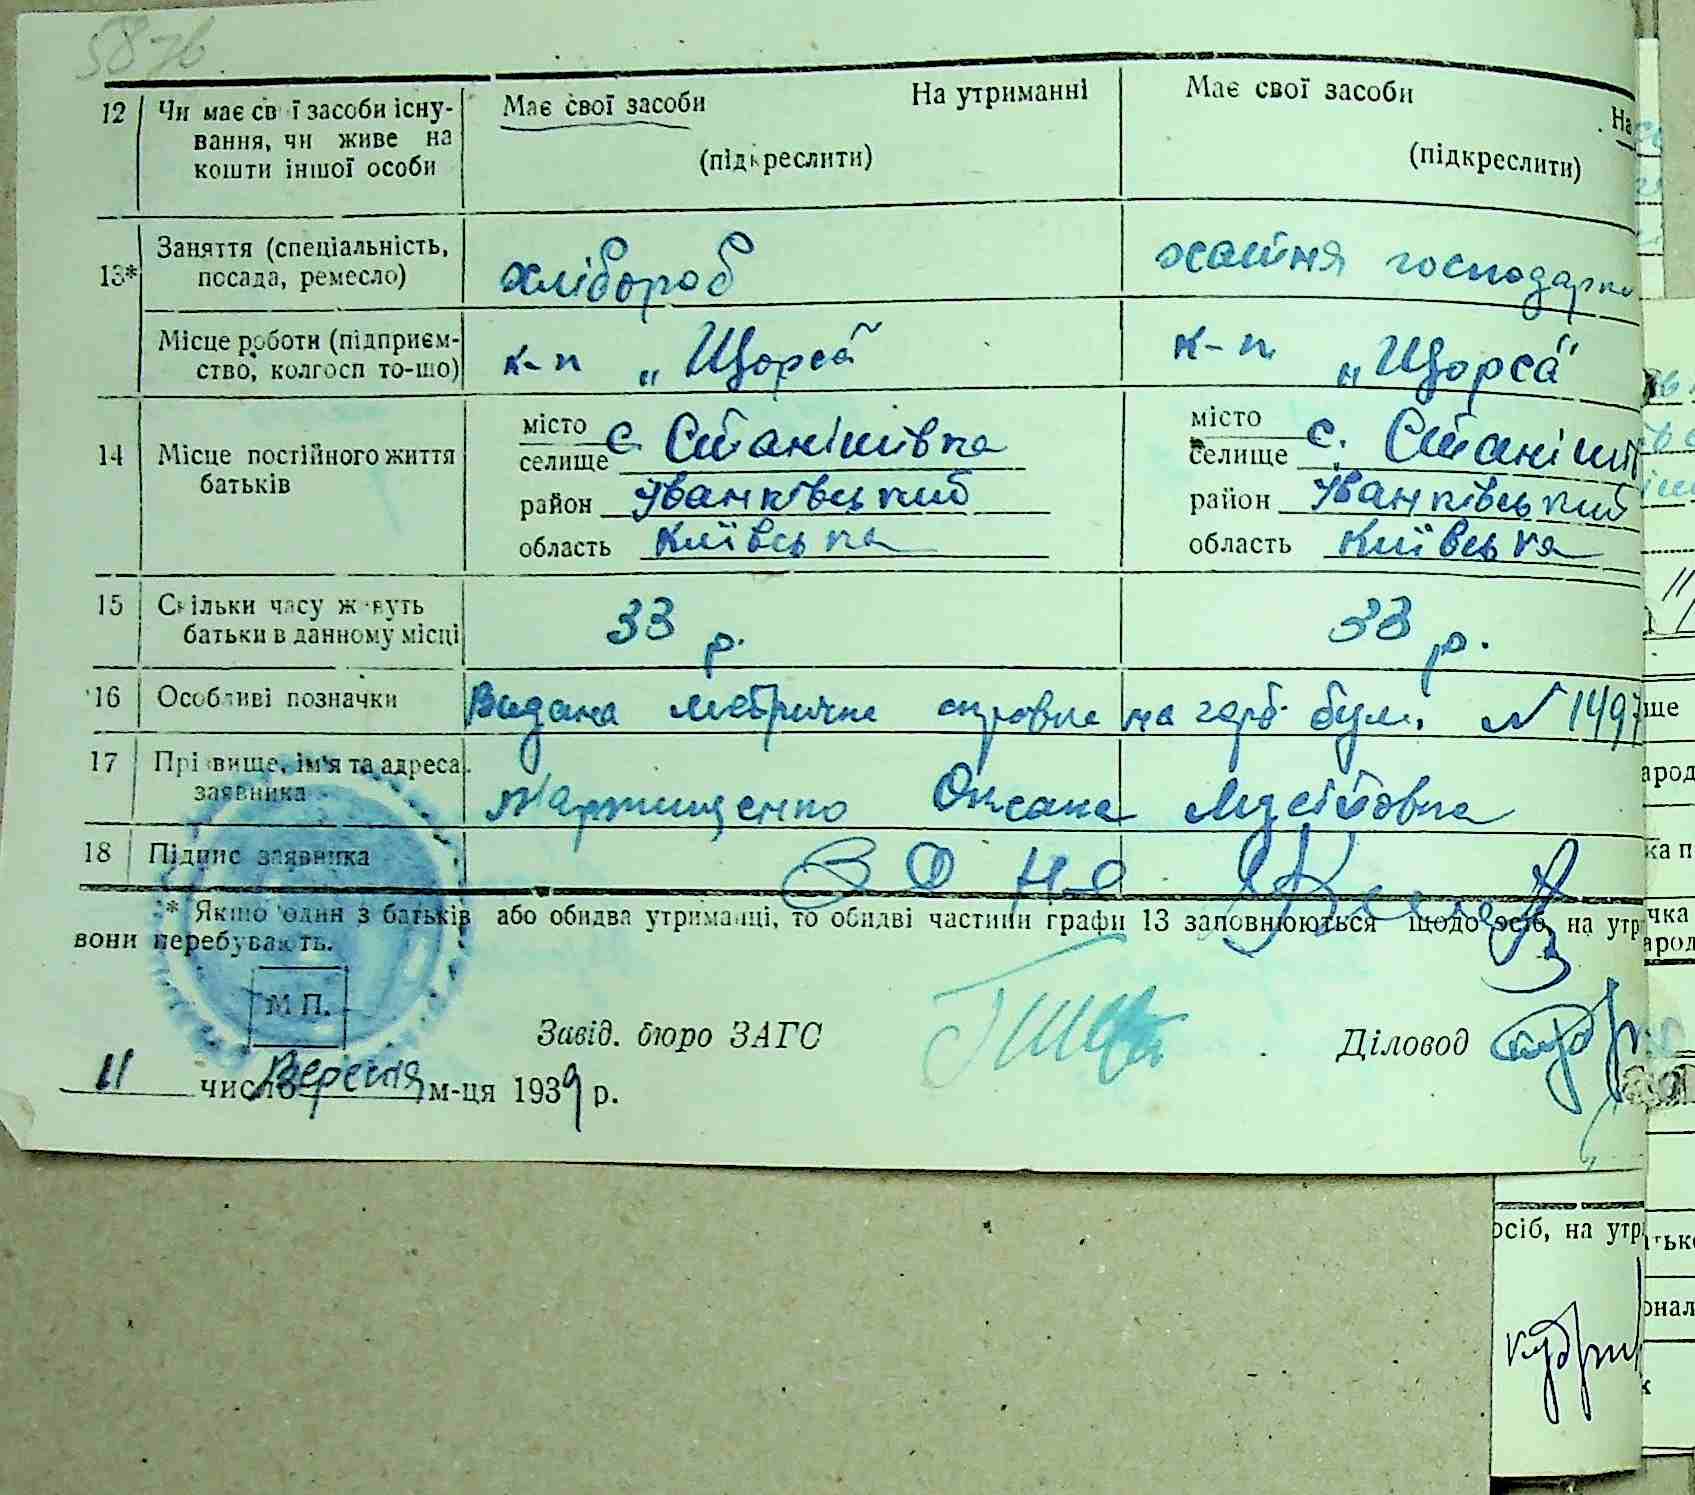 58 зв
12 Чи має св ї засоби існу- Має свої засоби На утриманні Має свої засоби На
вання, чи живе на
кошти іншої особи (підкреслити) (підкреслити)
13* Заняття (спеціальність, хлібороб хатня господарка
посада, ремесло)
Місце роботи (підприєм- к-п „Щорса" к-п. „Щорса"
ство, колгосп то-що)
14 Місце постійного життя місто с. Станішівка місто с. Станіші
батьків селище селище
район Іванківський район Іванківський
область Київська область Київська
15 Скільки часу живуть 33 р. 33 р.
батьки в данному місці
16 Особливі позначки Видана метричне на герб. бум. № 1497
17 Прізвище, ім'я та адреса Мартищенко Оксана Мусіївна
заявника
18 Підпис заявника
* Якшо один з батьків або обидва утриманні, то обидві частини графи 13 заповнюються щодо осіб, на утр
вони перебувають.
М П.
Завід. бюро ЗАГС Діловод
11 число Вересня м-ця 1939 р.
осіб, на утр